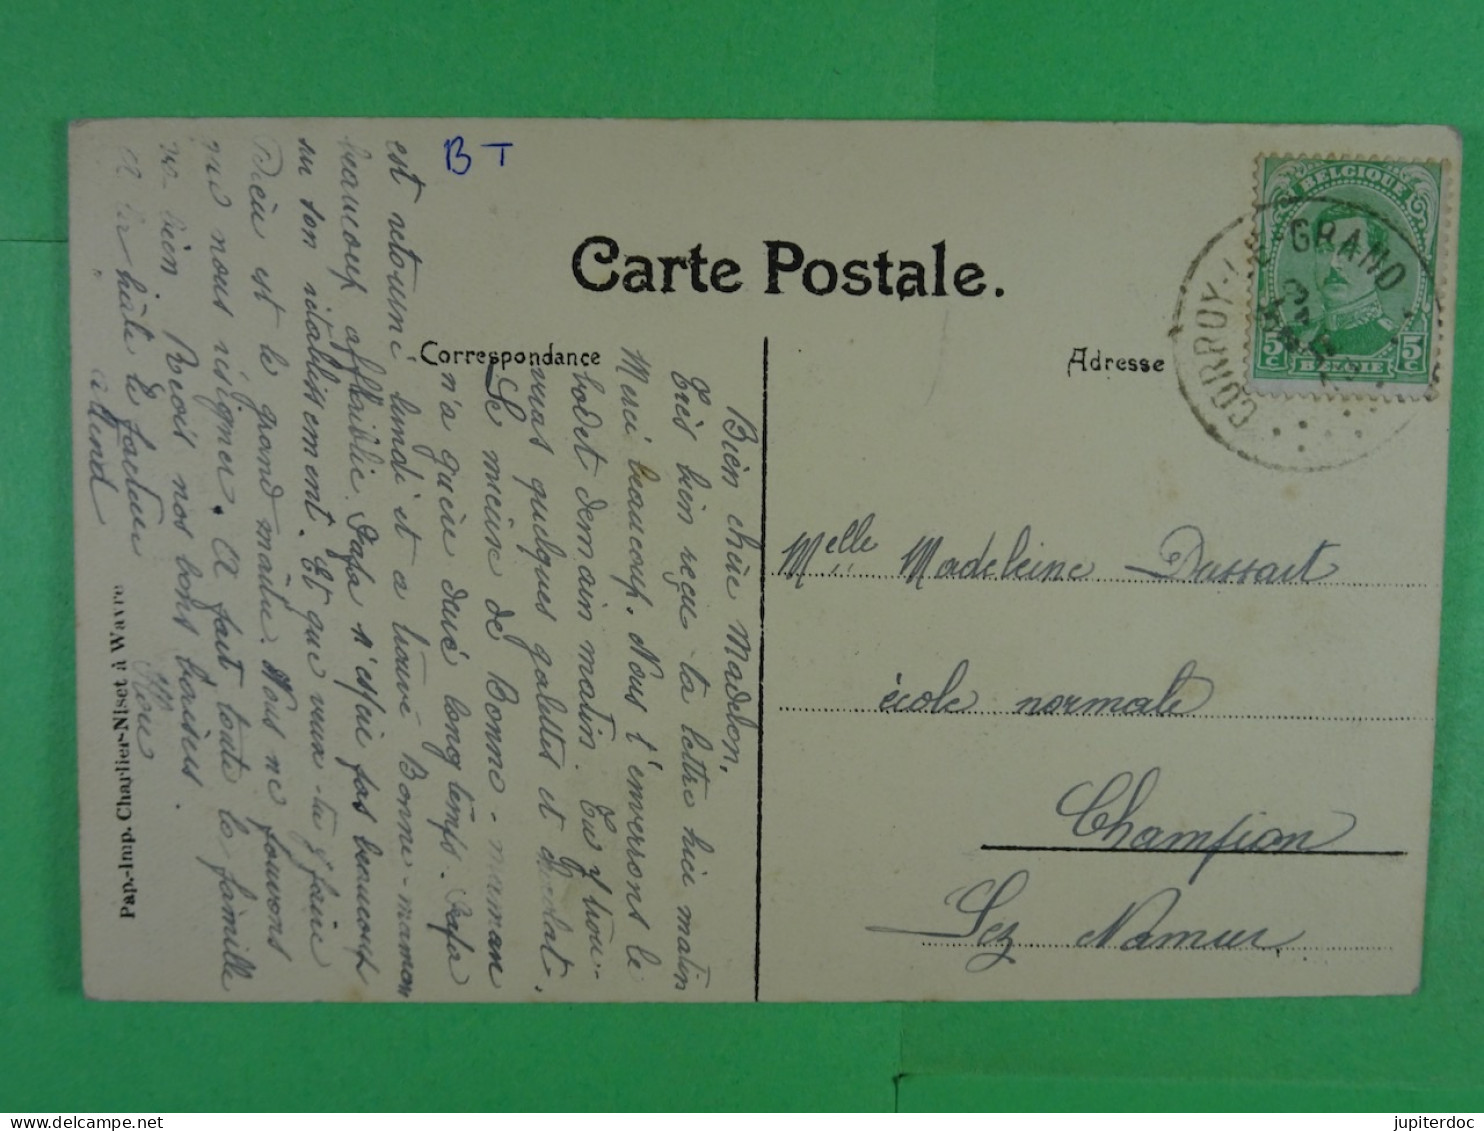 BT
Carte Postale.
Correspondance
Adresse
BELGIQUE
5 C
5 C
BELGIE
CORROY-LE-GRAND
Bien chère Madelon,
Très bien reçu ta lettre hier matin
Merci beaucoup. Nous t'enverrons le
bodet demain matin. Tu y trou-
veras quelques galettes et chocolat.
Le mieux de Bonne-maman
n'a guère duré longtemps. Papa
est retourné lundi et a trouvé Bonne-maman
beaucoup affaiblie. Papa n'espère pas beaucoup
un son rétablissement. Et que veux-tu y faire
Dieu est le grand maître. Nous ne pouvons
que nous résigner. A fait toute la famille
va bien Reçois nos bons baisers.
A la hâte le facteur
attend
Melle Madeleine Dussart
école normale
Champion
Lez Namur
Pap.-Imp. Charlier-Niset à Wavre
jupiterdoc